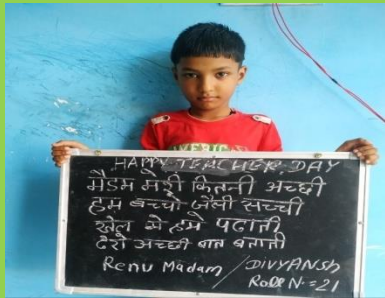 HAPPY TEACHER DAY
मैडम मेरी कितनी अच्छी
हम बच्चो जैसी सच्ची
खेल मे हमे पढाती
ढेरो अच्छी बात बताती
Renu Madam / DIVYANSH
Roll N = 21